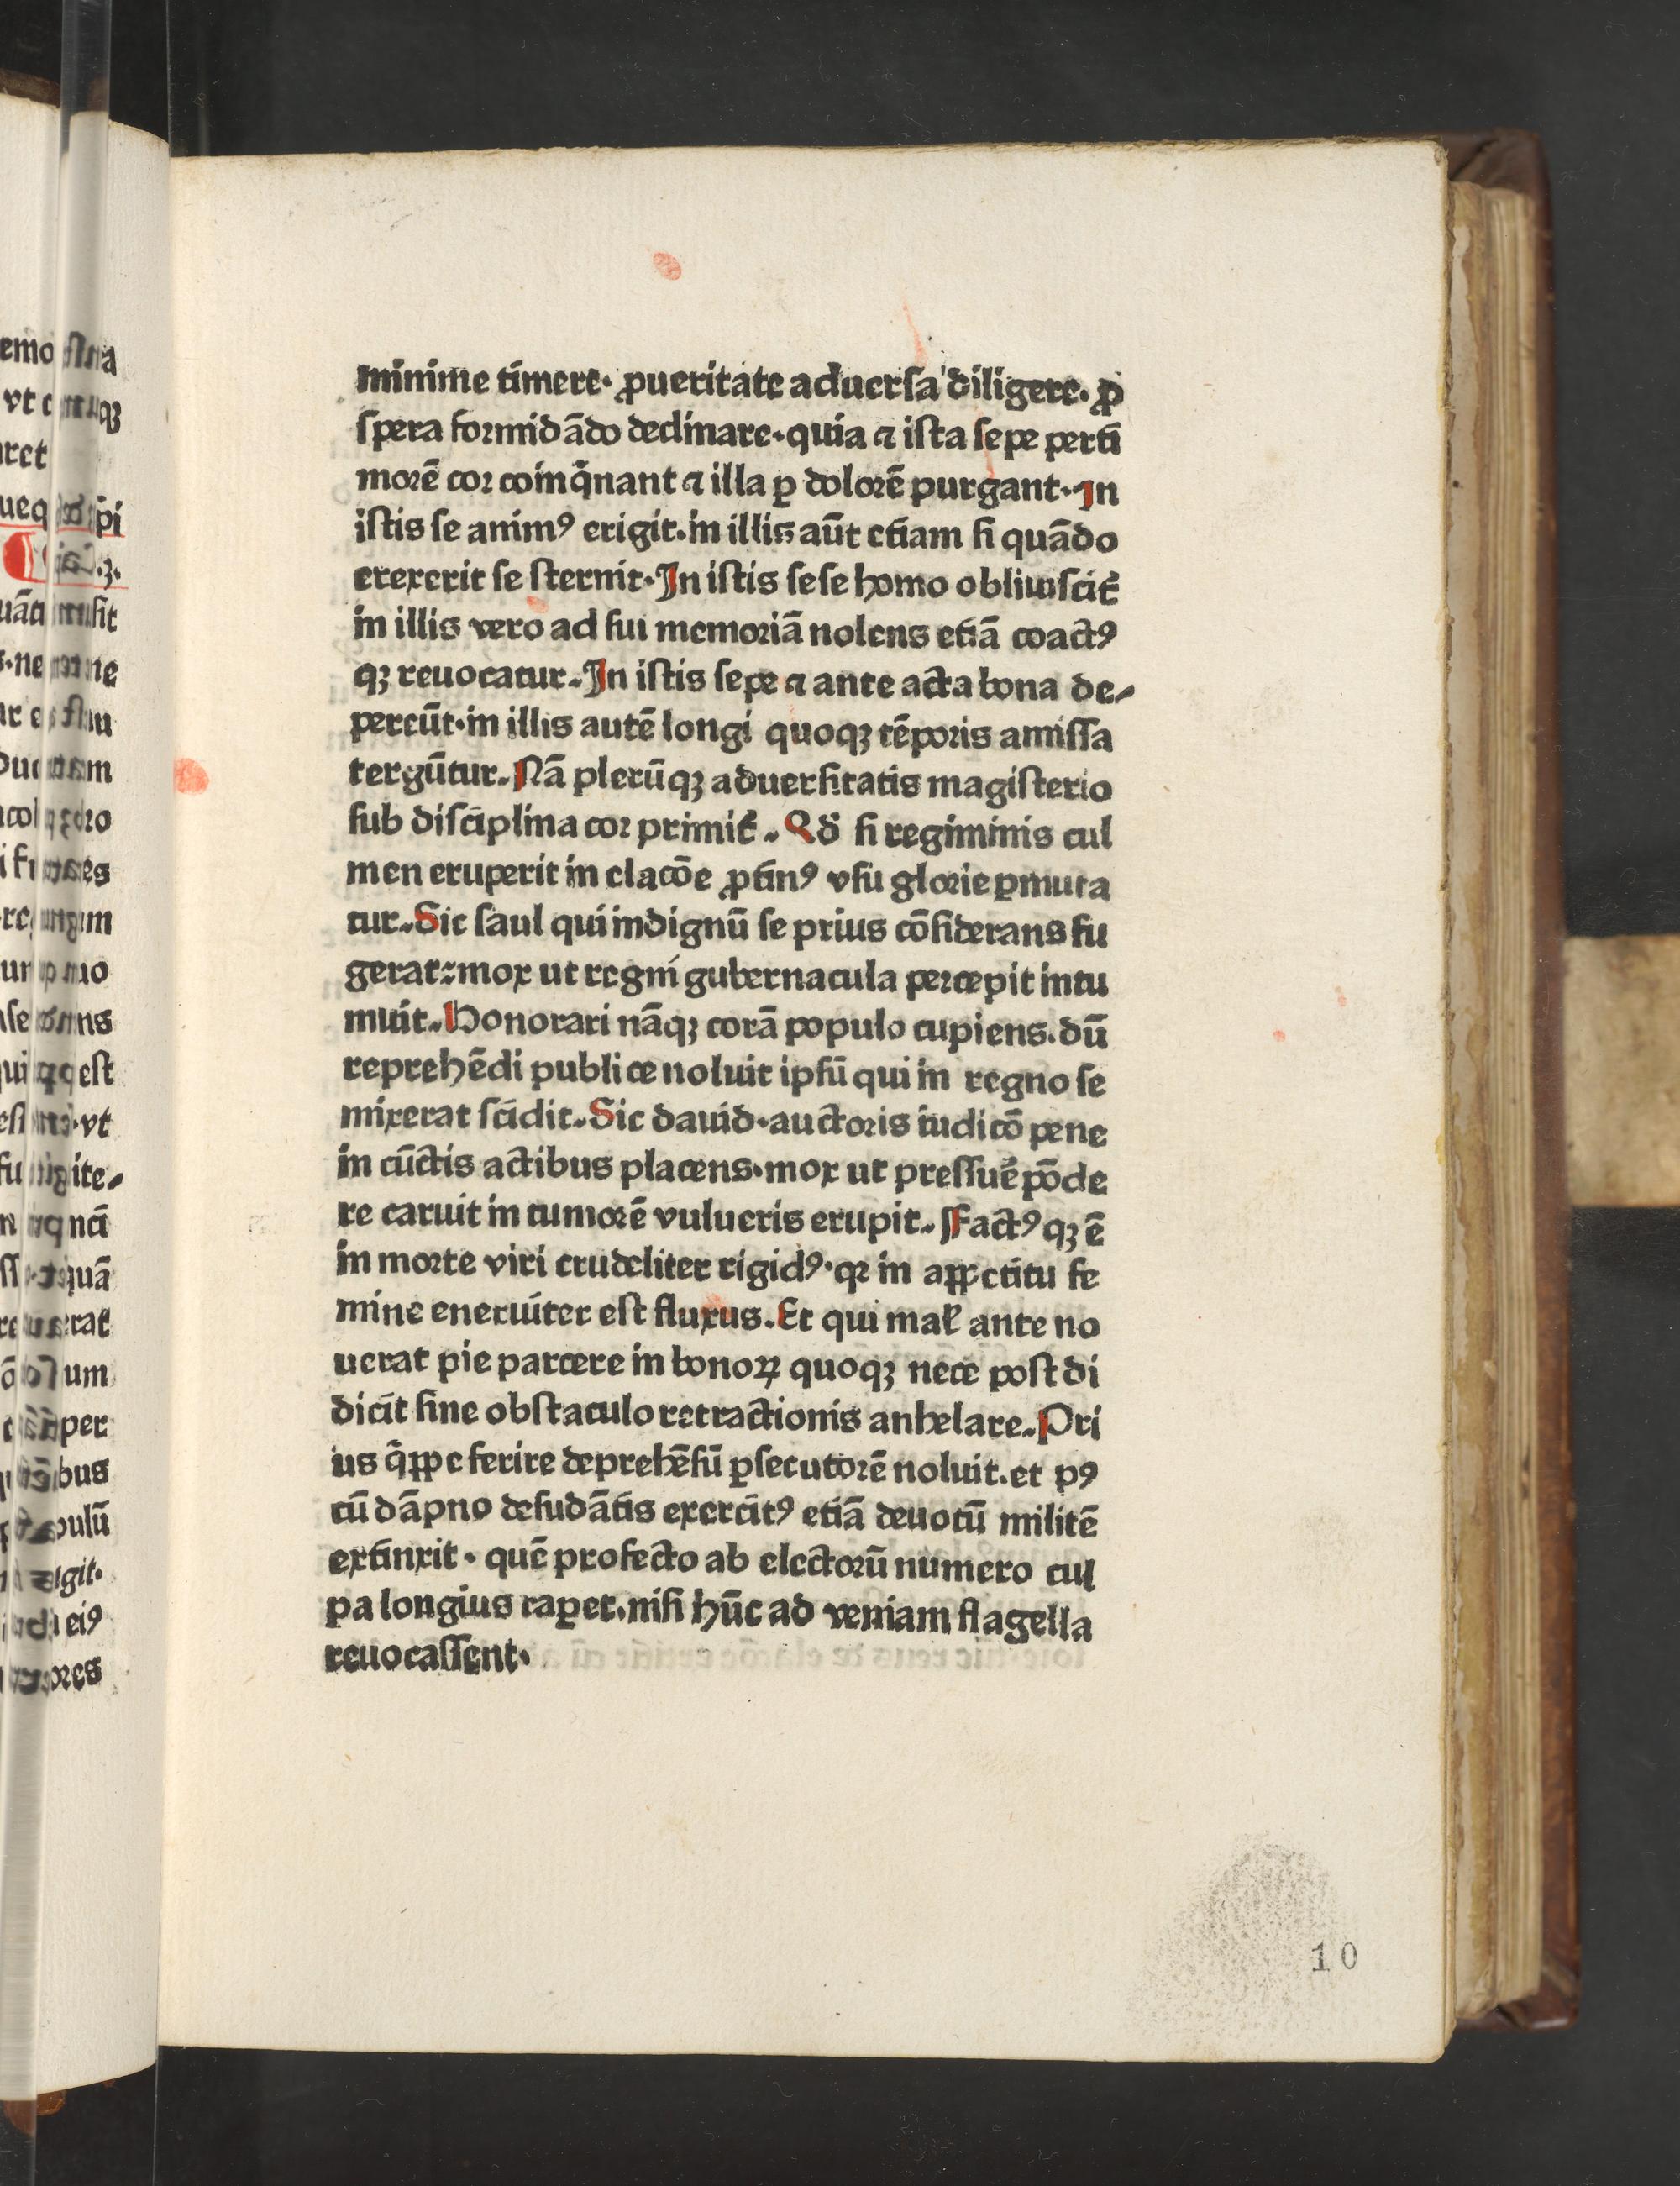 minime timere· ꝓueritate aduersa diligere· ꝓ
spera formidādo declinare·quia ⁊ ista sepe per ti
morē cor coinq̄nant ⁊ illa ꝑ dolorē purgant·In
istis se animꝰ erigit·in illis aūt etiam si quādo
erexerit se sternit·In istis sese homo obliuiscit᷑
in illis vero ad sui memoriā nolens etiā coactꝰ
qꝫ reuocatur·In istis sepe ⁊ ante acta bona de-
pereūt·in illis autē longi quoqꝫ tēporis amissa
tergūtur·Nā plerūqꝫ aduersitatis magisterio
sub disciplina cor primit᷑·Qd̄ si regiminis cul
men eruperit in elacōe ꝓtinꝰ vsu glorie ꝑmuta
tur·Sic saul qui indignū se prius cōsiderans fu
gerat:mox ut regni gubernacula percepit intu
muit·Honorari nāqꝫ corā populo cupiens·dū
reprehēdi publice noluit ipsū qui in regno se
mixerat scidit·Sic dauid·auctoris iudicō pene
in cūctis actibus placens·mox ut pressure᷑ pōde
re caruit in tumorē vulueris erupit·Factꝰqꝫ ē
in morte viri crudeliter rigidꝰ·qꝛ in appetitu fe
mine eneruiter est fluxus·Et qui mal̕ ante no
uerat pie parcere in bonoꝝ quoqꝫ nece post di
dicit sine obstaculo retractionis anhelare·Pri
us q̄ppe ferire deprehēsū ꝑsecutorē noluit·et pꝰ
cū dāpno desudātis exercitꝰ etiā deuotū militē
extinxit· quē profecto ab electorū numero cul
pa longius raꝑet·nisi hūc ad veniam flagella
reuocassent·
10